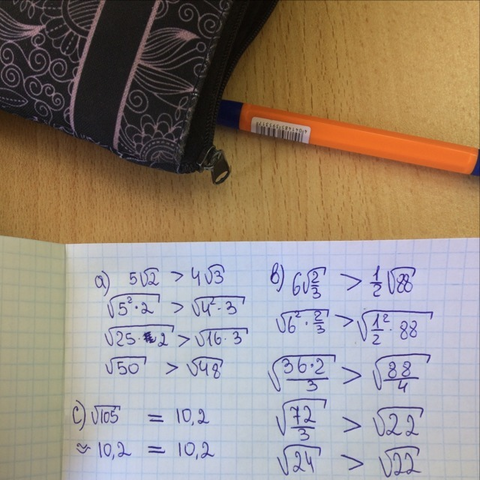 a) 5√2 > 4√3
√5²·2 > √4²·3
√25·2 > √16·3
√50 > √48
b) 6√2/3 > 1/2√88
√6²·2/3 > √1²/2·88
√36·2/3 > √88/4
√72/3 > √22
√24 > √22
c) √105 = 10,2
≈ 10,2 = 10,2